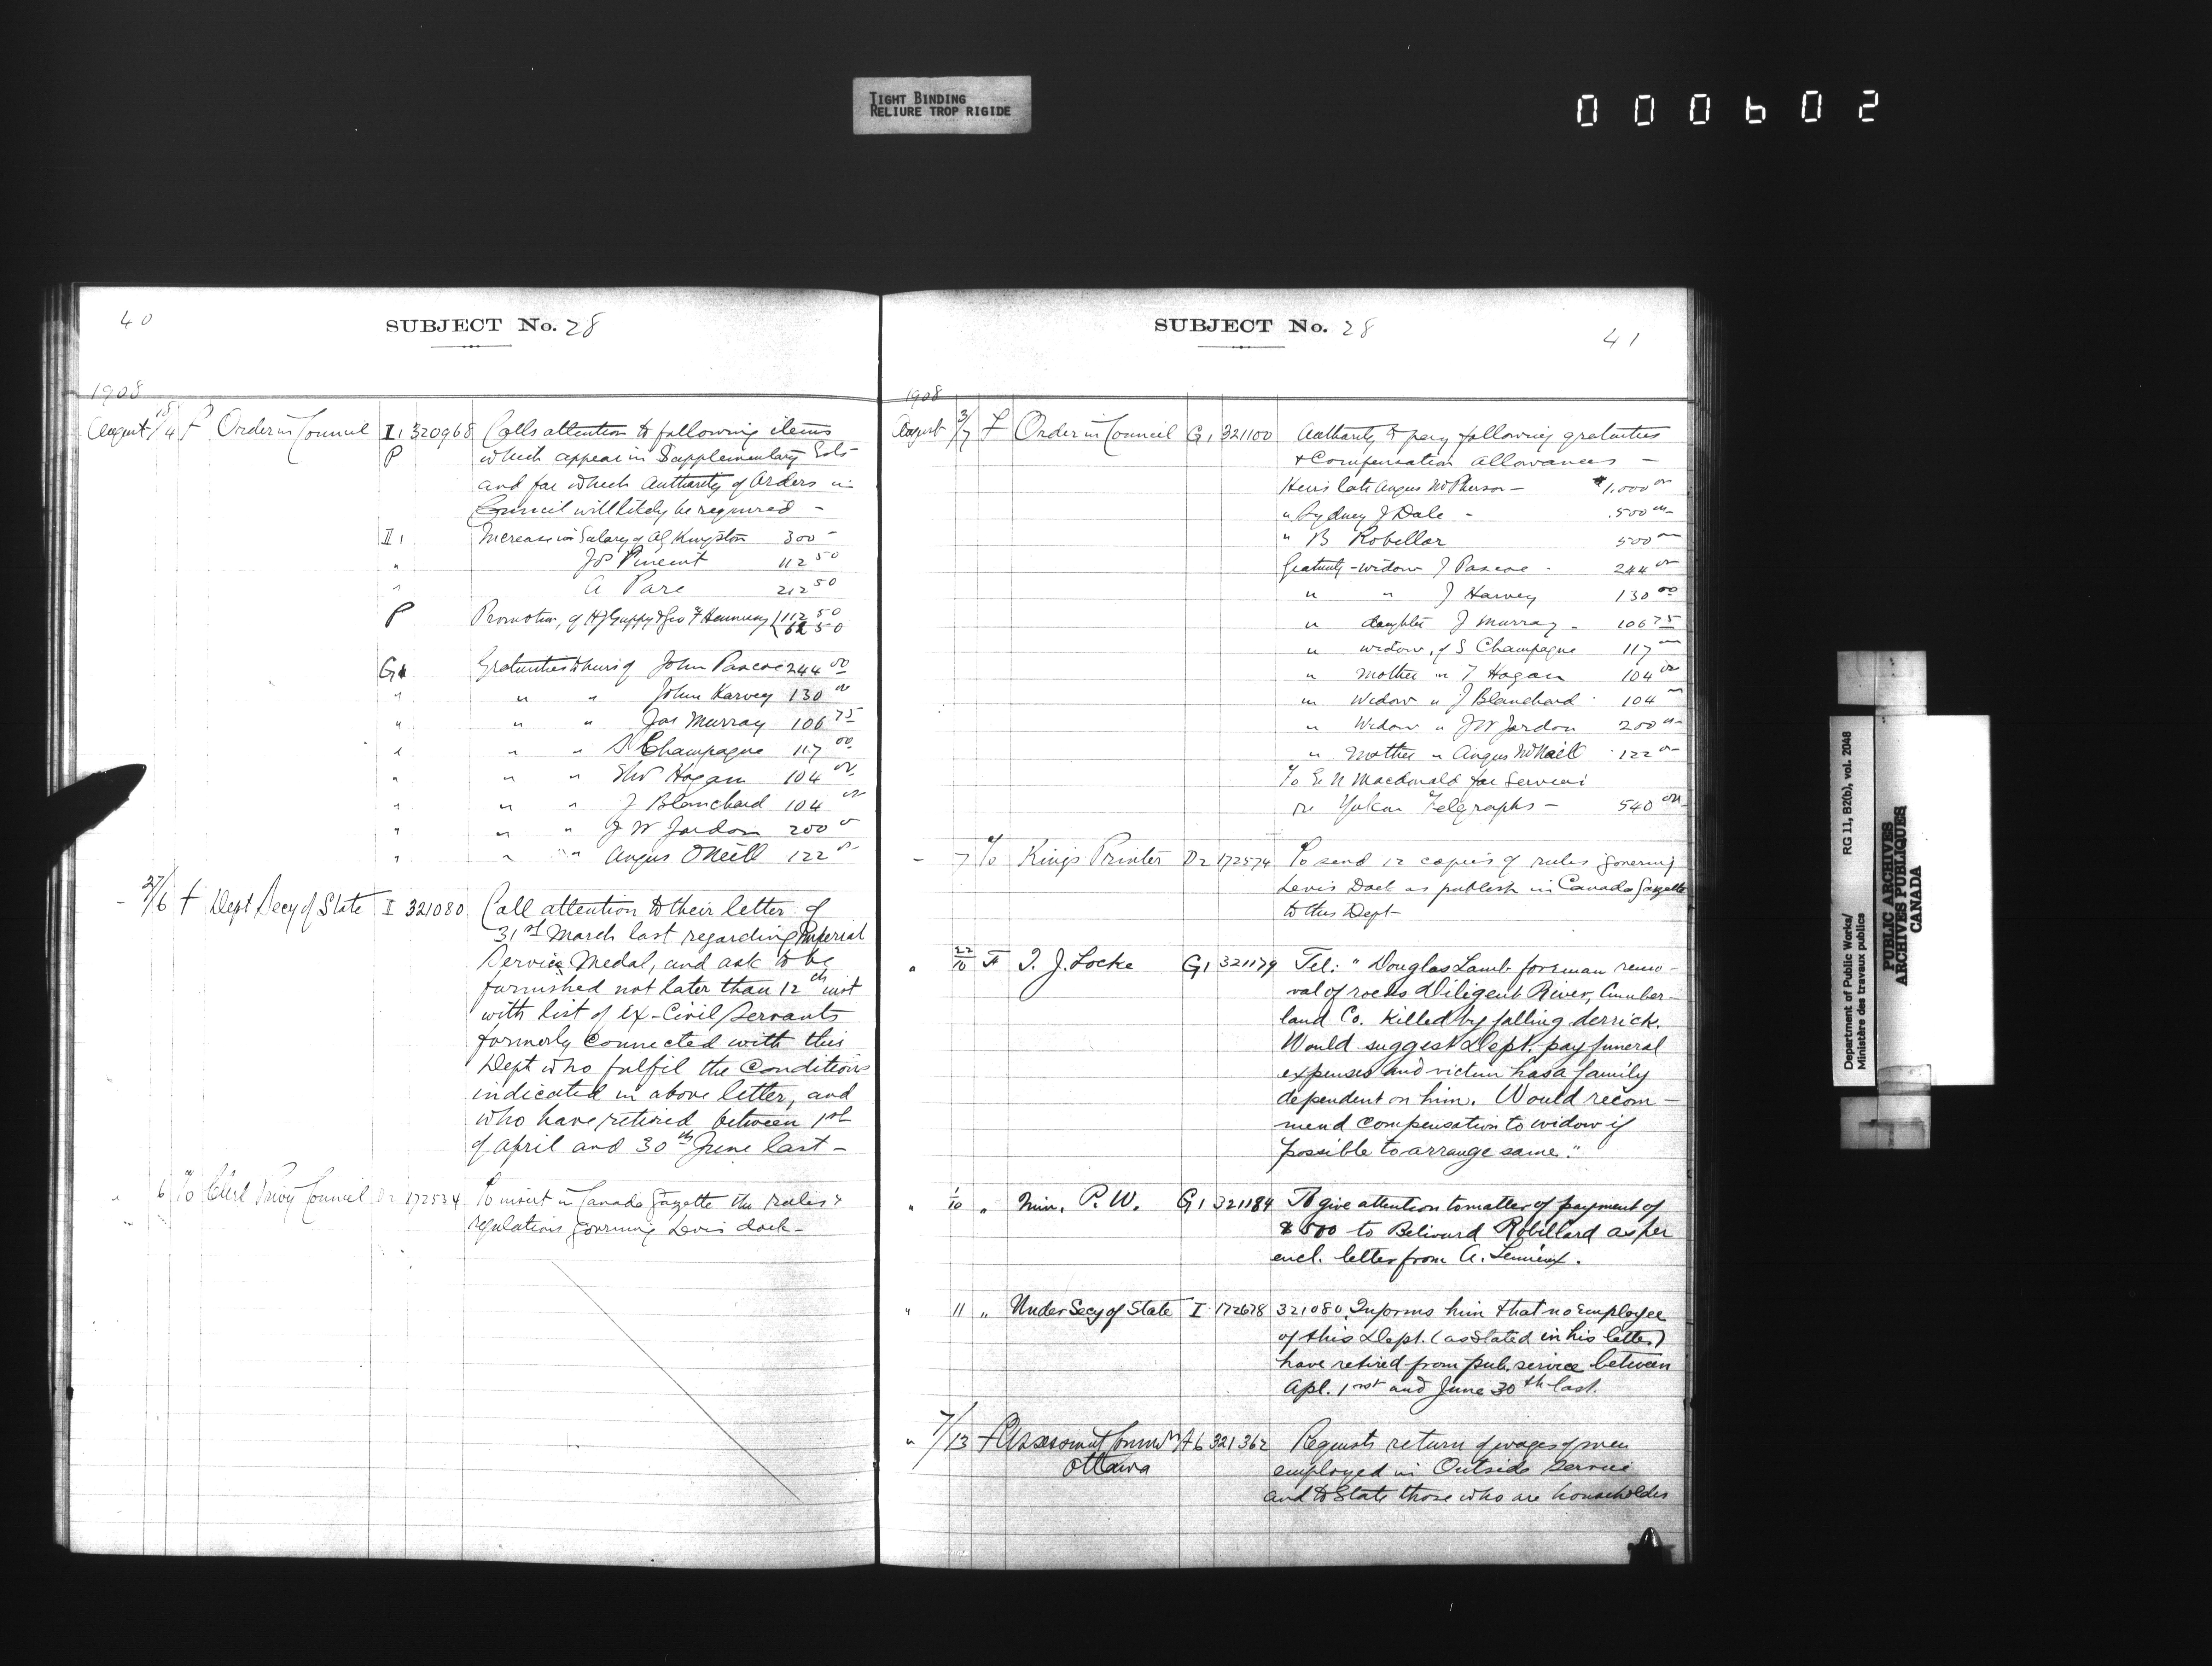 TIGHT BINDING
RELIURE TROP RIGIDE
000602
40
SUBJECT No. 28
1908
August 18/4 f Order in Council I1 320968 Calls attention to following items
P which appear in Supplementary Ests
and for which Authority of Orders in
Council will likely be required -
II1 Increase in Salary of A G Kingston 300 -
" J P Vincent 112 50
" A Pare 212 50
P Promotion, of H J Guppy & Geo F Hennessy 112 50
62 50
G1 Gratuities to heirs of John Pascoe 244 00
" " " John Harvey 130 00
" " " Jas Murray 106 75
" " " S Champagne 117 00
" " " Hogan 104 00
" " " J Blanchard 104 00
" " " J W Jardon 200 00
" " " Angus O'Neill 122 00
" 27/6 f Dept Secy of State I 321080 Call attention to their letter of
31st March last regarding Imperial
Service Medal, and ask to be
furnished not later than 12th inst
with list of ex-Civil Servants
formerly connected with this
Dept who fulfil the conditions
indicated in above letter, and
who have retired between 1st
of April and 30th June last -
" 6 To Clerk Privy Council D2 172534 To insert in Canada Gazette the rules &
regulations governing Levis dock -
SUBJECT No. 28
41
1908
August 3/7 F Order in Council G1 321100 Authority to pay following gratuities
& Compensation allowances -
Heirs late Angus McPherson - $1,000 00
" Sydney J Dale - 500 00
" B Robillar 500 00
Gratuity - widow J Pascoe - 244 00
" " J Harvey 130 00
" daughter J Murray - 106 75
" widow, of S Champagne 117 00
" Mother " T Hogan 104 00
" Widow " J Blanchard 104 00
" Widow " J W Jardon 200 00
" Mother " Angus McNeill 122 00
To E N Macdonald for Services
re Yukon Telegraphs - 540 00
" 7 To King's Printer D2 172574 To send 12 copies of rules governing
Levis Dock as publish in Canada Gazette
to this Dept -
" 22/10 F I. J. Locke G1 321179 Tel: "Douglas Lamb foreman remo-
val of rocks Diligent River, Cumber-
land Co. killed by falling derrick.
Would suggest Dept. pay funeral
expenses and victim has a family
dependent on him. Would recom-
mend compensation to widow if
possible to arrange same."
" 1/10 " Min. P. W. G1 321184 To give attention to matter of payment of
$500 to Belivard Robillard as per
encl. letter from A. Lemieux.
" 11 " Under Secy of State I 172678 321080. Informs him that no employee
of this Dept. (as stated in his letter)
have retired from pub. service between
Apl. 1rst and June 30th last.
" 7/13 f Assessment Commr A6 321362 Requests return of wages of men
Ottawa employed in Outside Service
and to State those who are householders
Department of Public Works/ RG 11, B2(b), vol. 2048
Ministère des travaux publics
PUBLIC ARCHIVES
ARCHIVES PUBLIQUES
CANADA